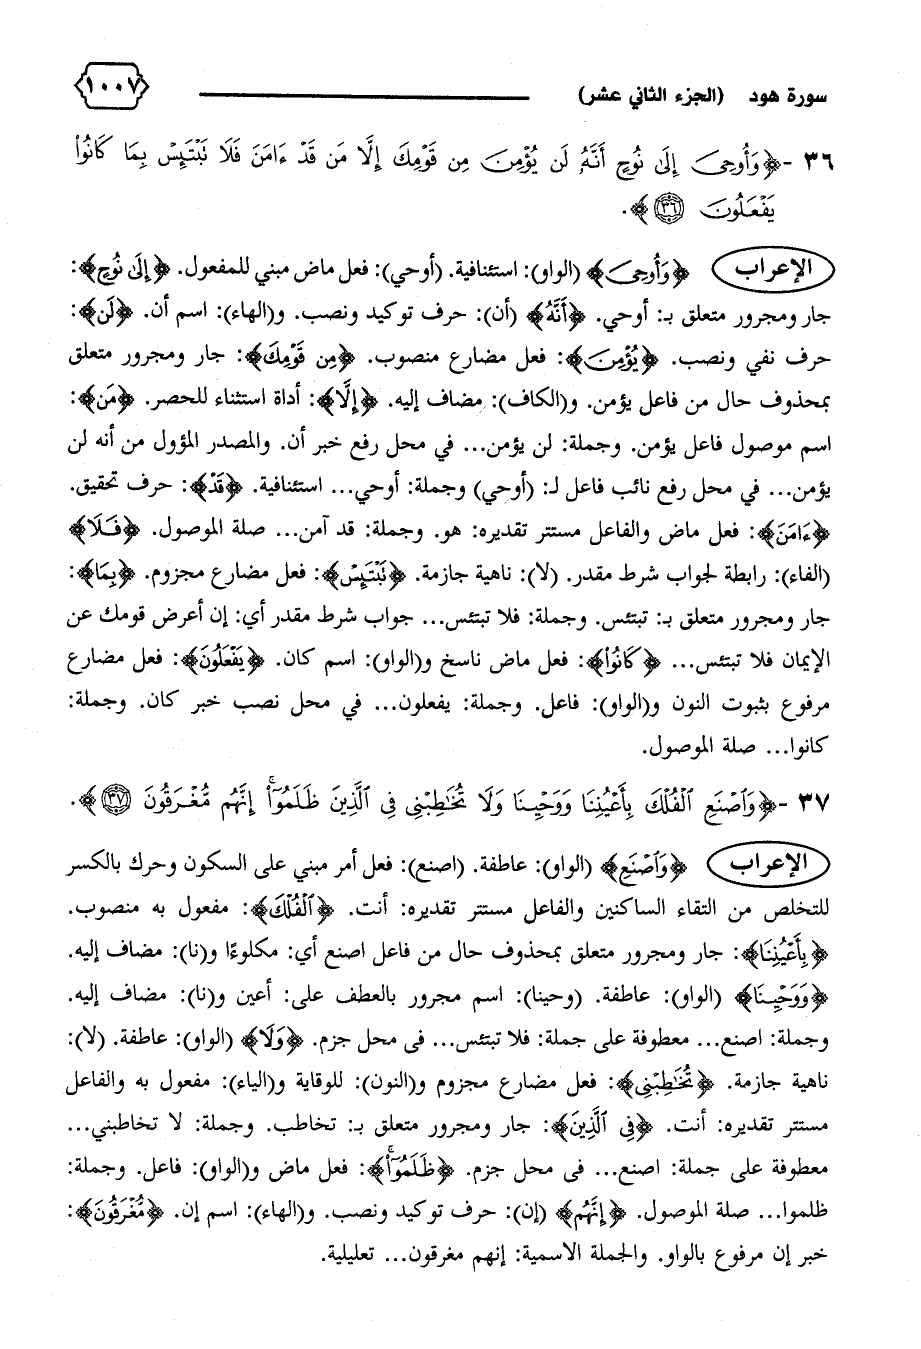 سورة هود (الجزء الثاني عشر) ١٠٠٧
٣٦ - ﴿وَأُوحِىَ إِلَىٰ نُوحٍ أَنَّهُۥ لَن يُؤْمِنَ مِن قَوْمِكَ إِلَّا مَن قَدْ ءَامَنَ فَلَا تَبْتَئِسْ بِمَا كَانُوا۟
يَفْعَلُونَ ٣٦﴾.
الإعراب ﴿وَأُوحِىَ﴾ (الواو): استئنافية. (أوحي): فعل ماض مبني للمفعول. ﴿إِلَىٰ نُوحٍ﴾:
جار ومجرور متعلق بـ: أوحي. ﴿أَنَّهُۥ﴾ (أن): حرف توكيد ونصب. و(الهاء): اسم أن. ﴿لَن﴾:
حرف نفي ونصب. ﴿يُؤْمِنَ﴾: فعل مضارع منصوب. ﴿مِن قَوْمِكَ﴾: جار ومجرور متعلق
بمحذوف حال من فاعل يؤمن. و(الكاف): مضاف إليه. ﴿إِلَّا﴾: أداة استثناء للحصر. ﴿مَن﴾:
اسم موصول فاعل يؤمن. وجملة: لن يؤمن... في محل رفع خبر أن. والمصدر المؤول من أنه لن
يؤمن... في محل رفع نائب فاعل لـ: (أوحي) وجملة: أوحي... استئنافية. ﴿قَدْ﴾: حرف تحقيق.
﴿ءَامَنَ﴾: فعل ماض والفاعل مستتر تقديره: هو. وجملة: قد آمن... صلة الموصول. ﴿فَلَا﴾
(الفاء): رابطة لجواب شرط مقدر. (لا): ناهية جازمة. ﴿تَبْتَئِسْ﴾: فعل مضارع مجزوم. ﴿بِمَا﴾:
جار ومجرور متعلق بـ: تبتئس. وجملة: فلا تبتئس... جواب شرط مقدر أي: إن أعرض قومك عن
الإيمان فلا تبتئس... ﴿كَانُوا۟﴾: فعل ماض ناسخ و(الواو): اسم كان. ﴿يَفْعَلُونَ﴾: فعل مضارع
مرفوع بثبوت النون و(الواو): فاعل. وجملة: يفعلون... في محل نصب خبر كان. وجملة:
كانوا... صلة الموصول.
٣٧ - ﴿وَٱصْنَعِ ٱلْفُلْكَ بِأَعْيُنِنَا وَوَحْيِنَا وَلَا تُخَٰطِبْنِى فِى ٱلَّذِينَ ظَلَمُوٓا۟ ۚ إِنَّهُم مُّغْرَقُونَ ٣٧﴾.
الإعراب ﴿وَٱصْنَعِ﴾ (الواو): عاطفة. (اصنع): فعل أمر مبني على السكون وحرك بالكسر
للتخلص من التقاء الساكنين والفاعل مستتر تقديره: أنت. ﴿ٱلْفُلْكَ﴾: مفعول به منصوب.
﴿بِأَعْيُنِنَا﴾: جار ومجرور متعلق بمحذوف حال من فاعل اصنع أي: مكلوءًا و(نا): مضاف إليه.
﴿وَوَحْيِنَا﴾ (الواو): عاطفة. (وحينا): اسم مجرور بالعطف على: أعين و(نا): مضاف إليه.
وجملة: اصنع... معطوفة على جملة: فلا تبتئس... فى محل جزم. ﴿وَلَا﴾ (الواو): عاطفة. (لا):
ناهية جازمة. ﴿تُخَٰطِبْنِى﴾: فعل مضارع مجزوم و(النون): للوقاية و(الياء): مفعول به والفاعل
مستتر تقديره: أنت. ﴿فِى ٱلَّذِينَ﴾: جار ومجرور متعلق بـ: تخاطب. وجملة: لا تخاطبني...
معطوفة على جملة: اصنع... فى محل جزم. ﴿ظَلَمُوٓا۟ ۚ﴾: فعل ماض و(الواو): فاعل. وجملة:
ظلموا... صلة الموصول. ﴿إِنَّهُم﴾ (إن): حرف توكيد ونصب. و(الهاء): اسم إن. ﴿مُّغْرَقُونَ﴾:
خبر إن مرفوع بالواو. والجملة الاسمية: إنهم مغرقون... تعليلية.